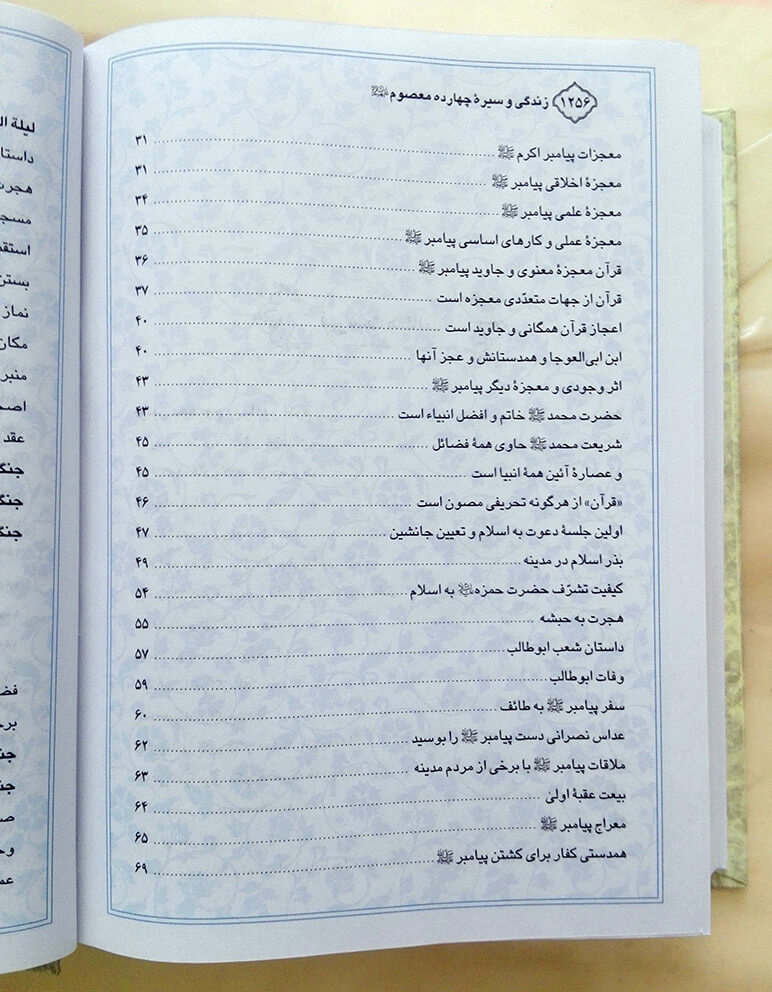 ۱۲۵۶ زندگی و سیرهٔ چهارده معصوم
معجزات پیامبر اکرم ﷺ ........ ۳۱
معجزهٔ اخلاقی پیامبر ﷺ ........ ۳۱
معجزهٔ علمی پیامبر ﷺ ........ ۳۴
معجزهٔ عملی و کارهای اساسی پیامبر ﷺ ........ ۳۵
قرآن معجزهٔ معنوی و جاوید پیامبر ﷺ ........ ۳۶
قرآن از جهات متعدّدی معجزه است ........ ۳۷
اعجاز قرآن همگانی و جاوید است ........ ۴۰
ابن ابی‌العوجا و همدستانش و عجز آنها ........ ۴۰
اثر وجودی و معجزهٔ دیگر پیامبر ﷺ ........ ۴۳
حضرت محمد ﷺ خاتم و افضل انبیاء است ........ ۴۳
شریعت محمد ﷺ حاوی همهٔ فضائل ........ ۴۵
و عصارهٔ آئین همهٔ انبیا است ........ ۴۵
«قرآن» از هرگونه تحریفی مصون است ........ ۴۶
اولین جلسهٔ دعوت به اسلام و تعیین جانشین ........ ۴۷
بذر اسلام در مدینه ........ ۴۹
کیفیت تشرّف حضرت حمزه به اسلام ........ ۵۴
هجرت به حبشه ........ ۵۵
داستان شعب ابوطالب ........ ۵۷
وفات ابوطالب ........ ۵۹
سفر پیامبر ﷺ به طائف ........ ۶۰
عداس نصرانی دست پیامبر ﷺ را بوسید ........ ۶۲
ملاقات پیامبر ﷺ با برخی از مردم مدینه ........ ۶۳
بیعت عقبهٔ اولیٰ ........ ۶۴
معراج پیامبر ﷺ ........ ۶۵
همدستی کفار برای کشتن پیامبر ﷺ ........ ۶۹
لیلة
نماز